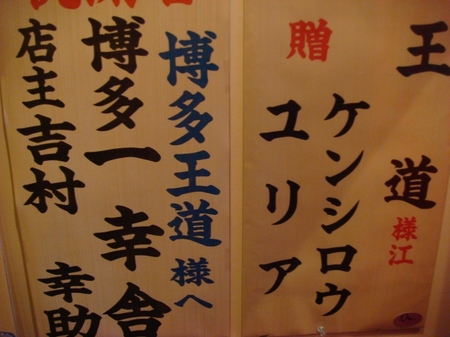 王道様江
贈
ケンシロウ
ユリア
博多王道様へ
博多一幸舎
店主吉村幸助